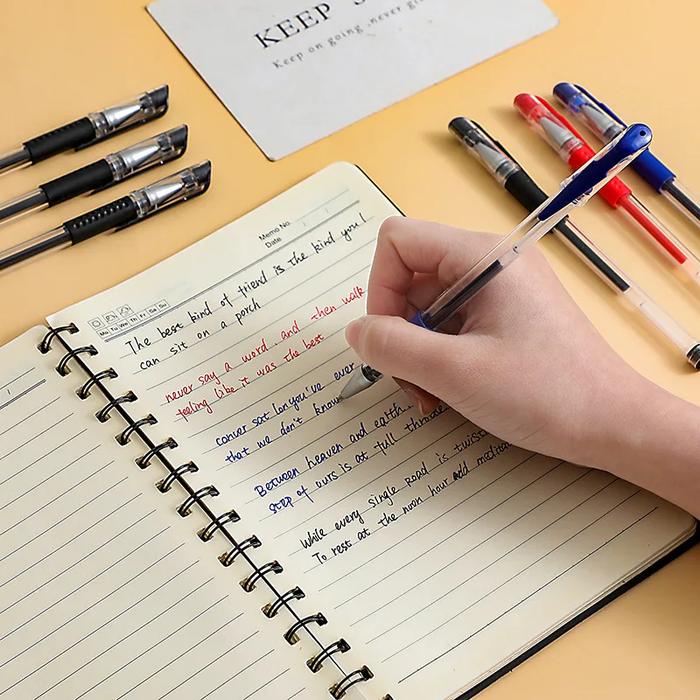 KEEP
Keep on going never
Memo No.
Date
Mo Tu We Th Fr Sa Su
The best kind of friend is the kind you
can sit on a porch
never say a word and then walk
feeling like it was the best
you've ever
that we don't know
Between heaven and earth
step of ours is at full throttle
While every single Road is
To rest at the noon hour add